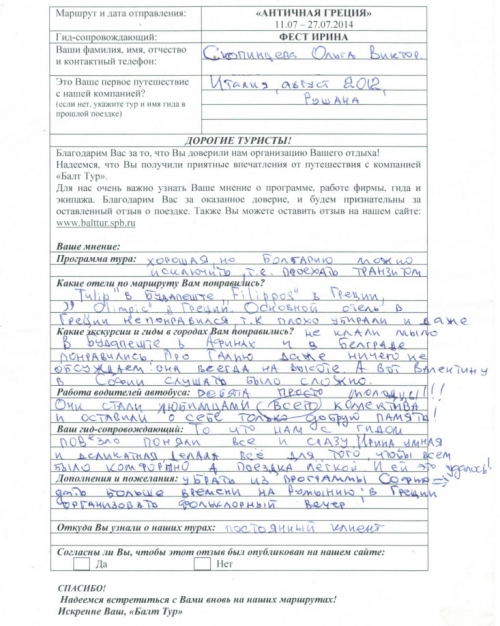 Маршрут и дата отправления: «АНТИЧНАЯ ГРЕЦИЯ»
11.07 – 27.07.2014
Гид-сопровождающий: ФЕСТ ИРИНА
Ваши фамилия, имя, отчество
и контактный телефон:
Скопинцева Ольга Виктор.
Это Ваше первое путешествие
с нашей компанией?
(если нет, укажите тур и имя гида в
прошлой поездке)
Италия, август 2012,
Рушана
ДОРОГИЕ ТУРИСТЫ!
Благодарим Вас за то, что Вы доверили нам организацию Вашего отдыха!
Надеемся, что Вы получили приятные впечатления от путешествия с компанией
«Балт Тур».
Для нас очень важно узнать Ваше мнение о программе, работе фирмы, гида и
экипажа. Благодарим Вас за оказанное доверие, и будем признательны за
оставленный отзыв о поездке. Также Вы можете оставить отзыв на нашем сайте:
www.balttur.spb.ru
Ваше мнение:
Программа тура: хорошая, но Болгарию можно
исключить, т.е. проехать транзитом
Какие отели по маршруту Вам понравились?
"Tulip" в Будапеште, "Filippos" в Греции,
"Olimpis" в Греции. Основной отель в
Греции не понравился т.к плохо убирали и даже
Какие экскурсии и гиды в городах Вам понравились? не клали мыло
В Будапеште в Афинах и в Белграде
понравились. Про Галию даже ничего не
обсуждаем: она всегда на высоте. А вот Валентину
в Софии слушать было сложно.
Работа водителей автобуса: Ребята просто молодцы!!!
Они стали любимцами (всего) колектива
и оставили о себе только добрую память!
Ваш гид-сопровождающий: То что нам с гидом
повезло поняли все и сразу. Ирина умная
и деликатная делала всё для того чтобы всем
было комфорно а поездка лёгкой. И ей это удалось!
Дополнения и пожелания: Убрать из программы Софию
дать больше времени на Румынию; в Греции
организовать фольклорный вечер,
Откуда Вы узнали о наших турах: постоянный клиент
Согласны ли Вы, чтобы этот отзыв был опубликован на нашем сайте:
Да Нет
СПАСИБО!
Надеемся встретиться с Вами вновь на наших маршрутах!
Искренне Ваш, «Балт Тур»